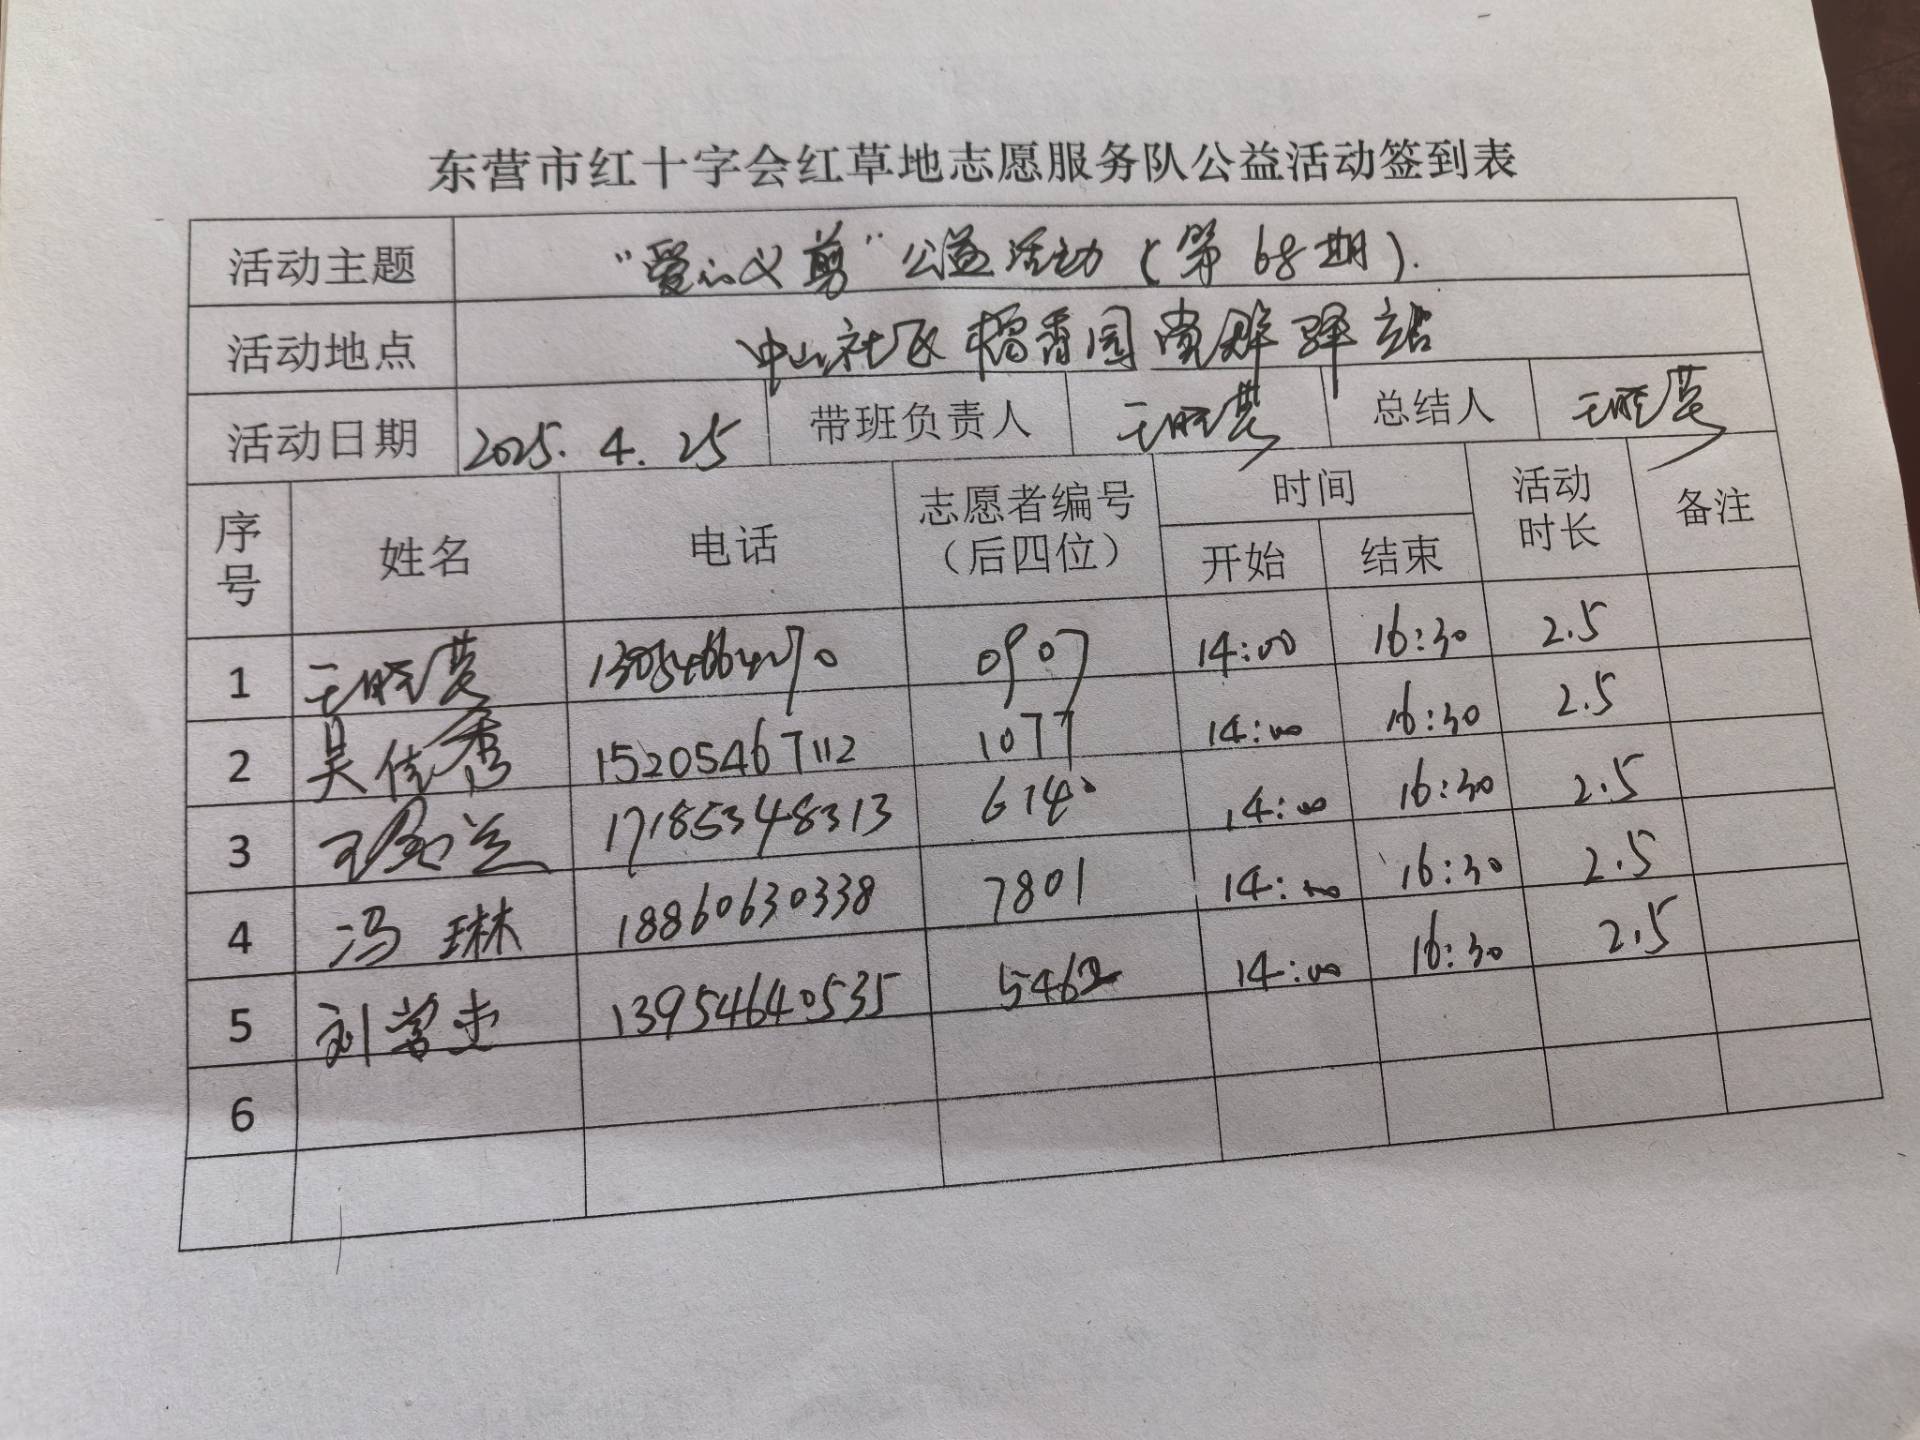 东营市红十字会红草地志愿服务队公益活动签到表
活动主题 “爱心义剪”公益活动（第68期）.
活动地点 中山社区稻香园党群驿站
活动日期 2025.4.25 带班负责人 王晓营 总结人 王晓营
序号 姓名 电话 志愿者编号（后四位） 时间 开始 结束 活动时长 备注
1 王晓营 0907 14:00 16:30 2.5
2 吴佳秀 15205467112 1077 14:00 16:30 2.5
3 17185348313 6140 14:00 16:30 2.5
4 冯琳 18860630338 7801 14:00 16:30 2.5
5 刘营忠 13954640535 5462 14:00 16:30 2.5
6